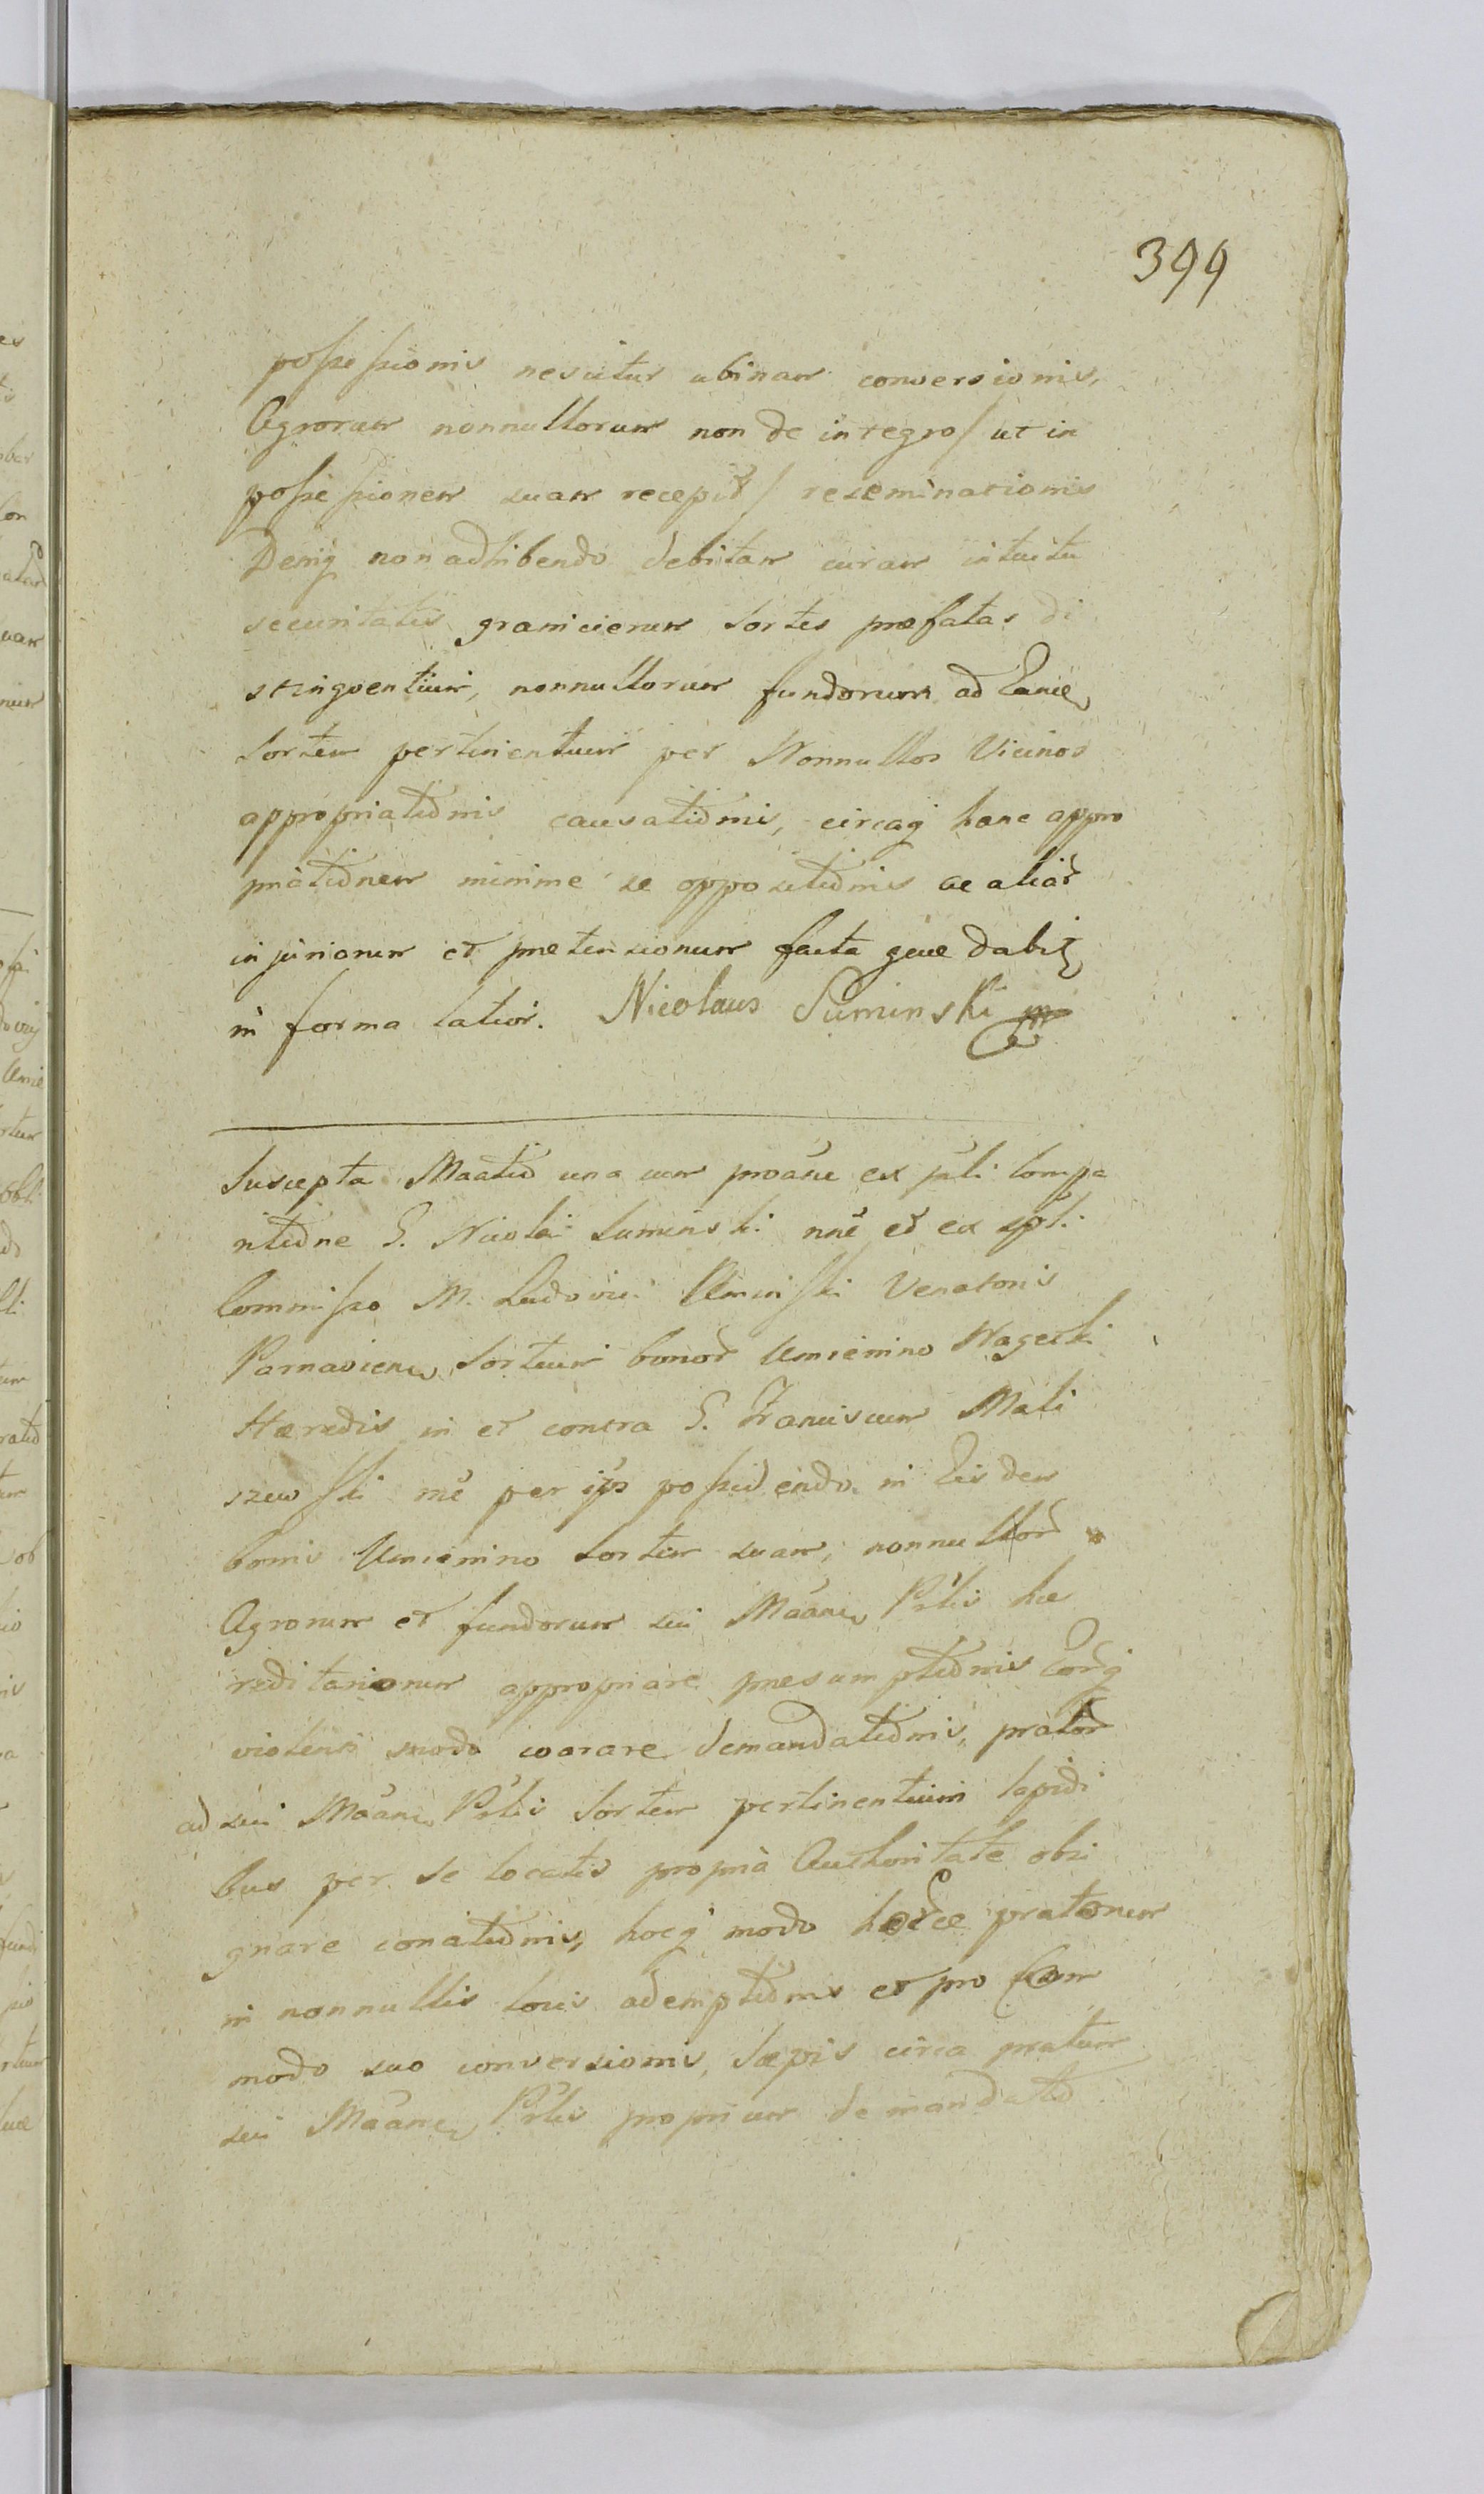 399
possessionis nescitur ubinam conversionis,
Agrorum nonnullorum non de integro / ut in
possessionem suam recepit / reseminationis
Deniq non adhibendo debitam curam intuitu
securitatis granicierum Sortes præfatas di
stingventium, nonnullorum fundorum ad Eance
Sortem pertinentium per Nonnullos Vicinos
appropriationis causationis, circaq hanc appro
priationem minime se oppositionis ac aliar
injuriorum et prætensionum facta quæ dabit
in forma latior. Nicolaus Suminski mp

Suscepta Maatio una cum proane ex psli Compa
ritione G. Nicolai Suminski nne et ex spli
Commisso M. Ludovici Uminski Venatoris
Parnavien Sortium bonor Umienino Nagorki
Hæredis in et contra G. Franciscum Mali
szewski me per ips possidendo in Eisdem
bonis Umienino Sortem suam, nonnullor
Agrorum et fundorum sui Maane Prtis hæ
reditariorum appropriare presumptionis Eorq
violento modo coarare demandationis, prator
ad sui Maane Prtis Sortem pertinentium lapidi
bus per se locatis propria Authoritate obsi
gnare conationis, hocq modo horce pratorum
in nonnullis locis ademptionis et pro Com
modo suo conversionis, Sæpis circa pratum
sui Maane Prtis proprium demandatio